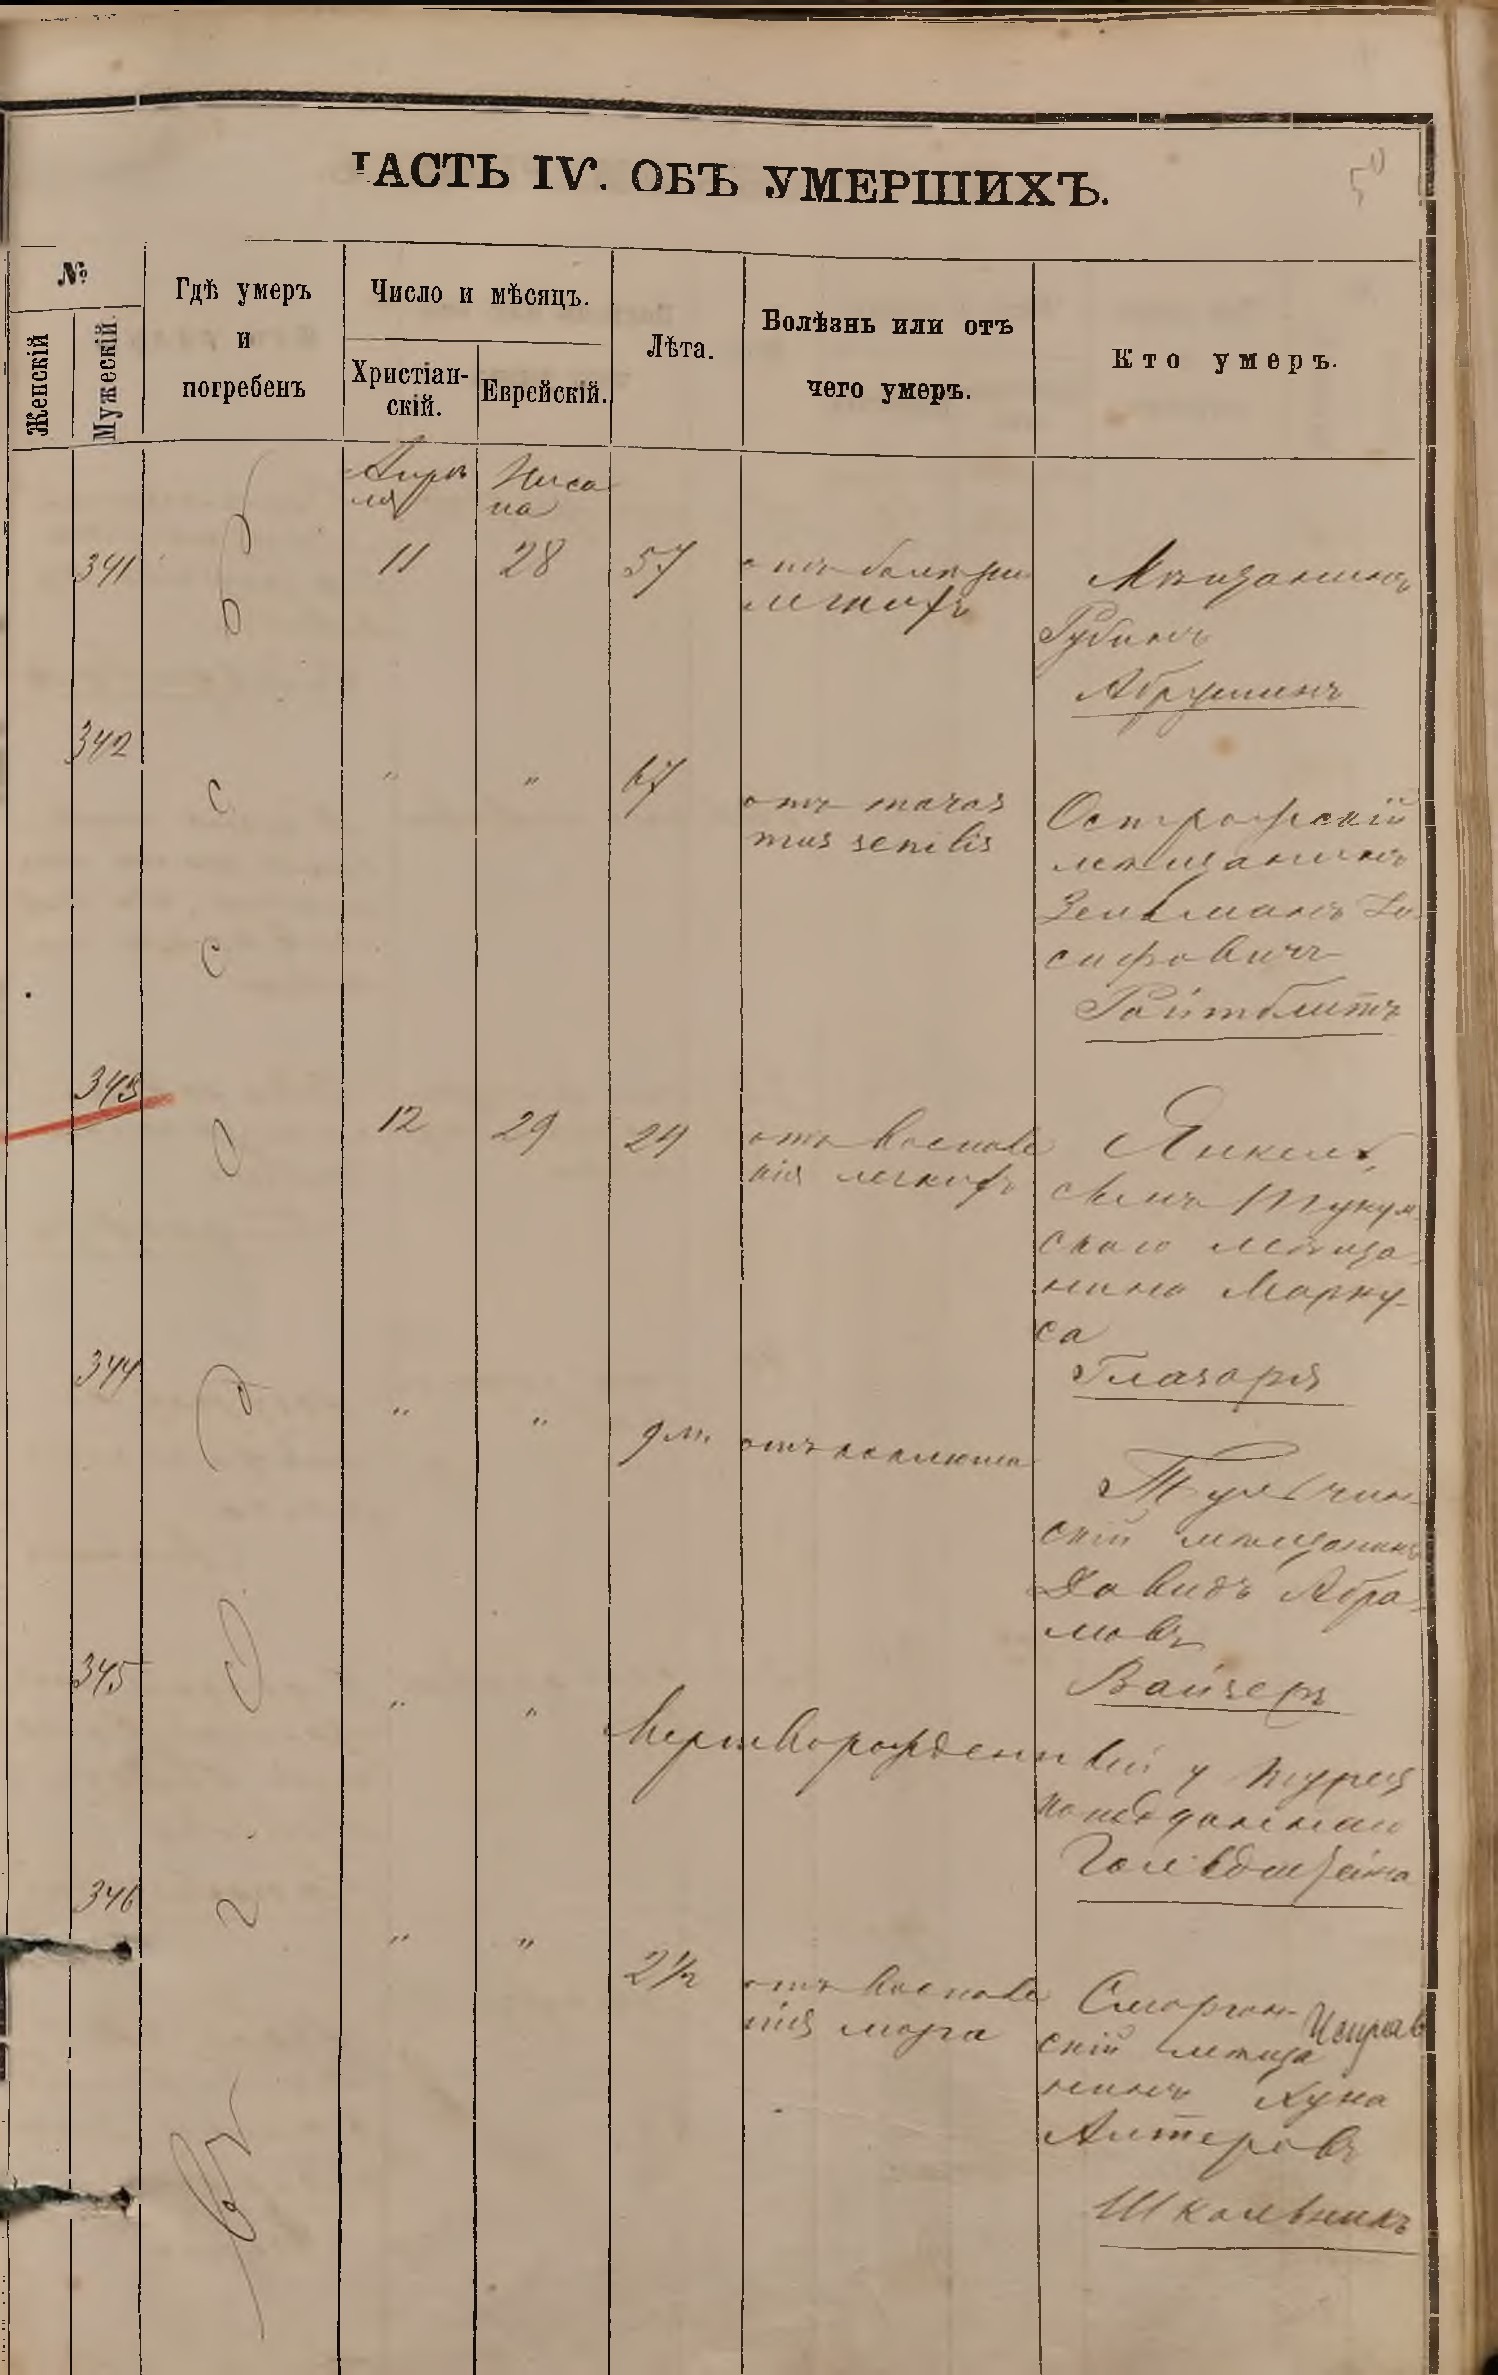 ЧАСТЬ IV. ОБЪ УМЕРШИХЪ.
№
Женскій
Мужескій
Гдѣ умеръ
и
погребенъ
Число и мѣсяцъ.
Христіан-
скій.
Еврейскій.
Лѣта.
Болѣзнь или отъ
чего умеръ.
Кто умеръ.
Апрѣ
ля
Ниса
на
341
11
28
57
отъ болѣзни
легкихъ
Мѣщанинъ
Рубинъ
Абруминъ
342
"
"
67
отъ maras
mus senilis
Острожскій
мѣщанинъ
Зельманъ Іо-
сифовичъ
Ройтблитъ
343
12
29
24
отъ воспале
нія легкихъ
Янкель,
сынъ Тукум-
скаго мѣща-
нина Марку-
са
Глазаря
344
"
"
9 м.
отъ коклюша
Тульчин-
скій мѣщанинъ
Давидъ Абра-
мовъ
Вайзеръ
345
"
"
Мертворожденный у турец
поподданнаго
Гольдштейна
346
"
"
2 1/2
отъ воспале
нія мозга
Сморгон-
скій мѣща
нинъ Хуна
Алтеровъ
Школьникъ
Исправ
Одессѣ
въ